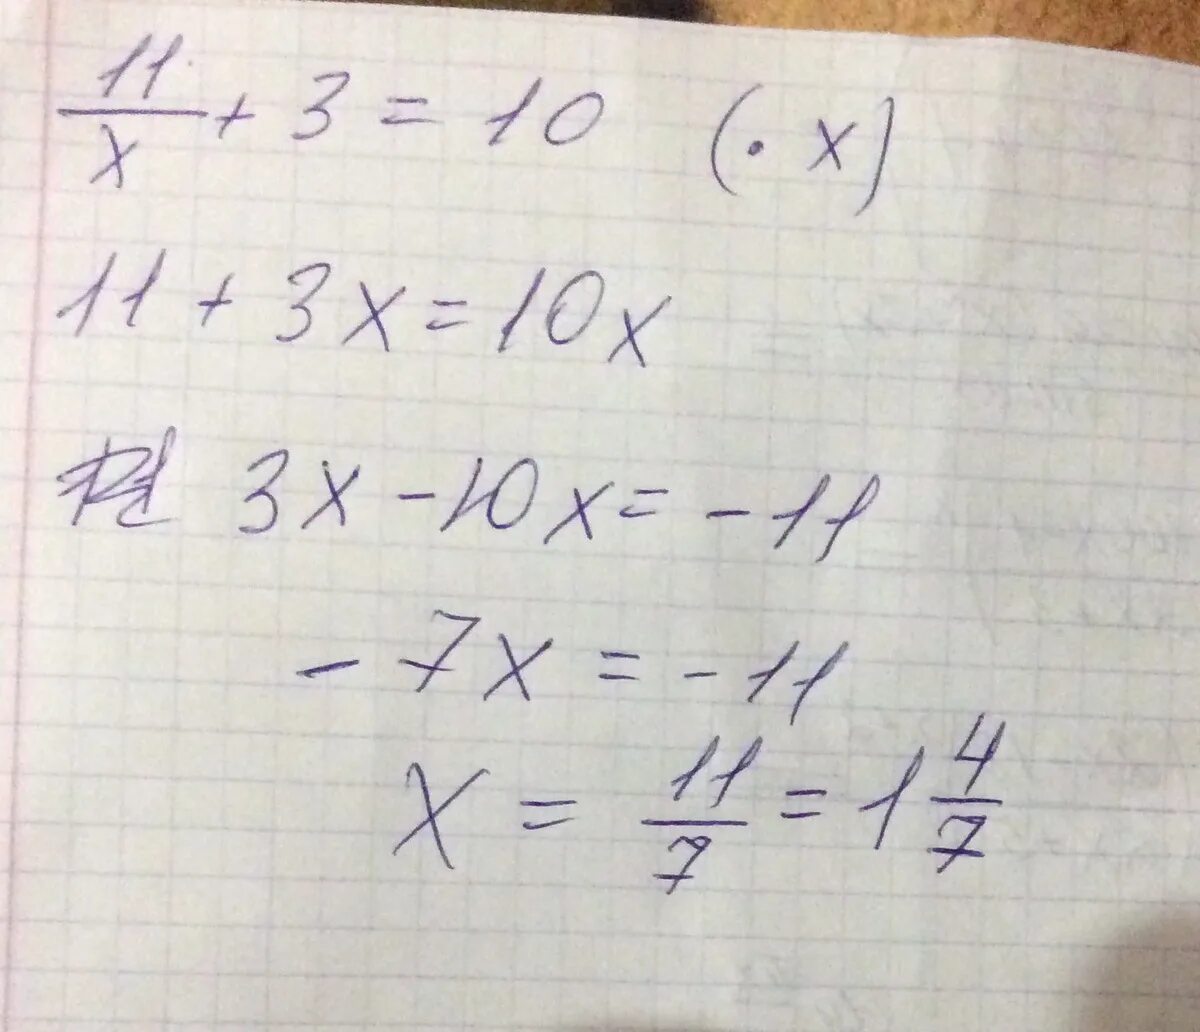 11/x + 3 = 10 (· x)
11 + 3x = 10x
3x - 10x = -11
- 7x = -11
x = 11/7 = 1 4/7